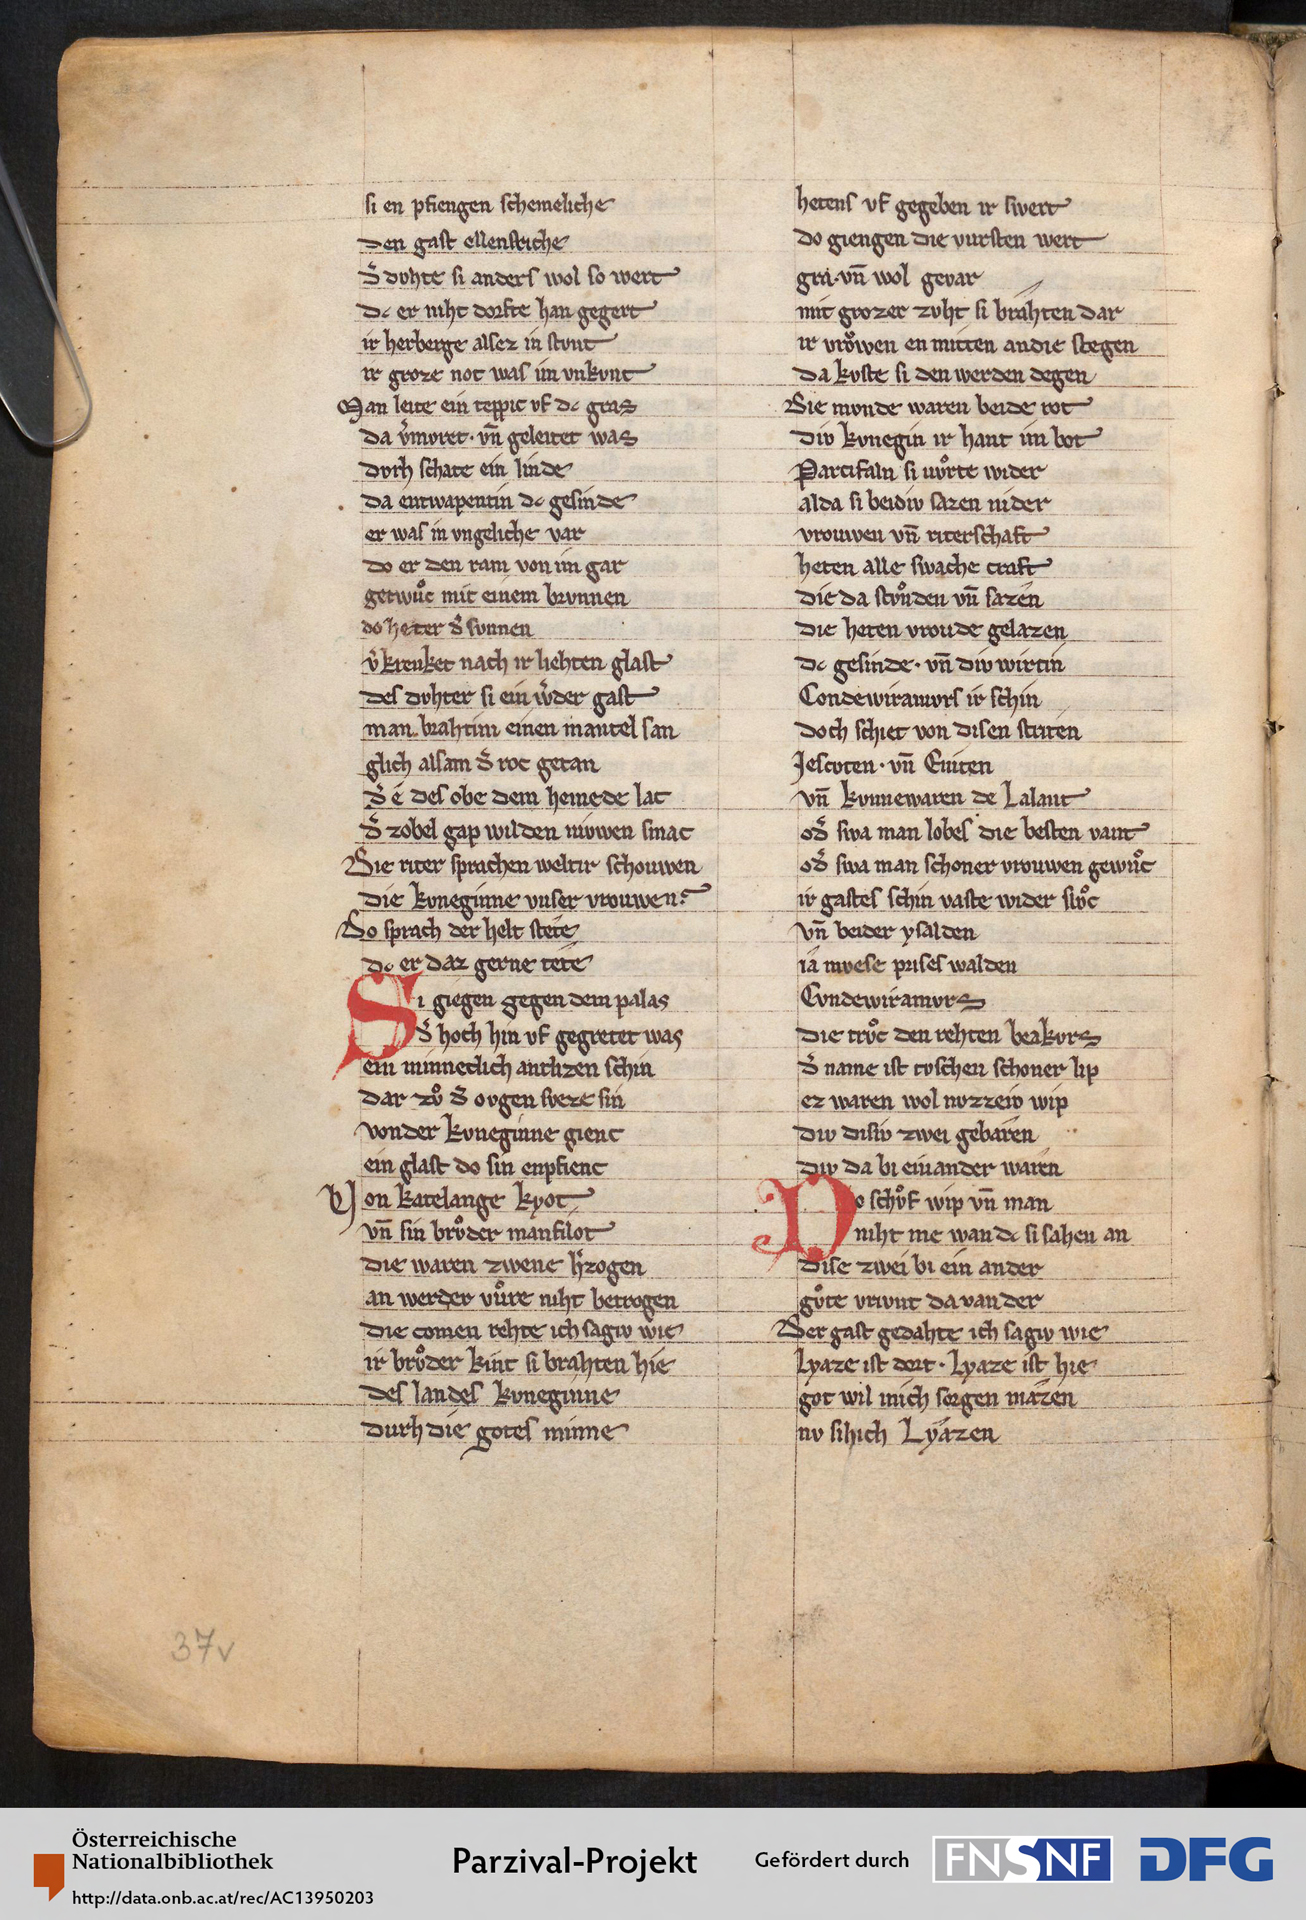 si en pfiengen schemeliche
den gast ellenstriche
d̾ dvhte si anders wol so wert
dc er niht dorfte han gegert
ir herberge allez in stvnt
ir groze not was im vnkvnt
Man leite ein teppic vf dc gras
da v̾mvret · vn̄ geleitet was
dvrh schate ein linde
da entwapentin dc gesinde
er was in vngeliche var
do er den ram von im gar
getwuͦc mit einem brvnnen
do heter d̾ svnnen
v̾krenket nach ir liehten glast
des dvhter si ein w̾der gast
man brahtim einen mantel san
glich alsam d̾ roc getan
d̾ é des obe dem hemede lac
d̾ zobel gap wilden nivwen smac
Die riter sprachen weltir schouwen
die kvneginne vnser vrouwen
Do sprach der helt stete
dc er daz gerne tete
Si giegen gegen dem palas
d̾ hoch hin vf gegretet was
ein minneclich antlizen schin
dar zvͦ d̾ ovgen sveze sin
von der kvneginne gienc
ein glast do sin enpfienc
Von katelange kyot
vn̄ sin brvͦder manfilot
die waren zwene h̾zogen
an werder vuͦre niht betrogen
die comen rehte ich sagiv wie
ir brvͦder kint si brahten hie
des landes kvneginne
durh die gotes minne
hetens vf gegeben ir swert
do giengen die vursten wert
gra · vn̄ wol gevar
mit grozer zvht si brahten dar
ir vroͮwen en mitten an die stegen
da kvste si den werden degen
Die mvnde waren beide rot
div kvnegin ir hant im bot
Parcifaln si vvͦrte wider
alda si beidiv sazen nider
vrouwen vn̄ riterschaft
heten alle swache craft
die da stvͦnden vn̄ sazen
die heten vroude gelazen
dc gesinde · vn̄ div wirtin
Condewiramvrs ir schin
doch schiet von disen striten
Jescvten · vn̄ Eniten
vn̄ kvnnewaren de Lalant
od̾ swa man lobes die besten vant
od̾ swa man schoner vrouwen gewuͦc
ir gastes schin vaste wider slvͦc
vn̄ beider ysalden
ia mvese prises walden
Cvndewiramvrs
die trvͦc den rehten beakvrs
d̾ name ist tvschen schoner lip
ez waren wol nvzzeiv wip
div disiv zwei gebaren
div da bi einander waren
Do schvͦf wip vn̄ man
niht me wan dc si sahen an
dise zwei bi ein ander
goͮte vrivnt da vander
Der gast gedahte ich sagiv wie
Lyaze ist dort · Lyaze ist hie
got wil mich sorgen mazen
nv sihich Lyazen
37v
Österreichische
Nationalbibliothek
http://data.onb.ac.at/rec/AC13950203
Parzival-Projekt
Gefördert durch
FNSNF
DFG